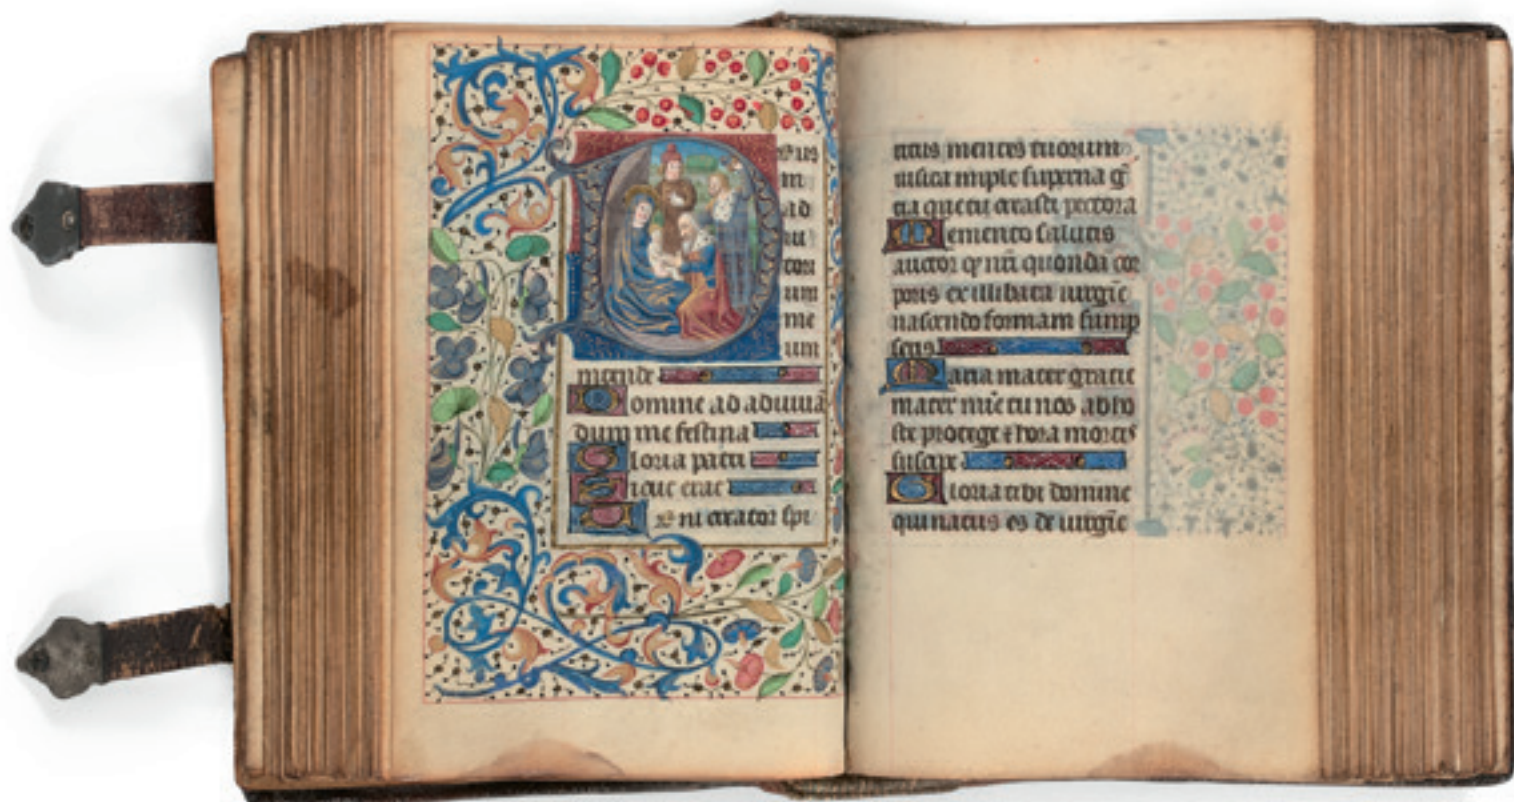 Deus
in
ad
iu
tori
um
me
um
intende
Domine ad adiuuā
dum me festina
Gloria patri
Sicut erat
Veni creator spi
ritus mentes tuorum
uisita imple superna gr̄
tia que tu creasti pectora
Memento salutis
auctor qr nr̄i quonda cor
poris ex illibata uirgīe
nascendo formam sump
seris
Maria mater gratie
mater mīe tu nos ab ho
ste protege et hora mortis
suscipe
Gloria tibi domine
qui natus es de uirgīe